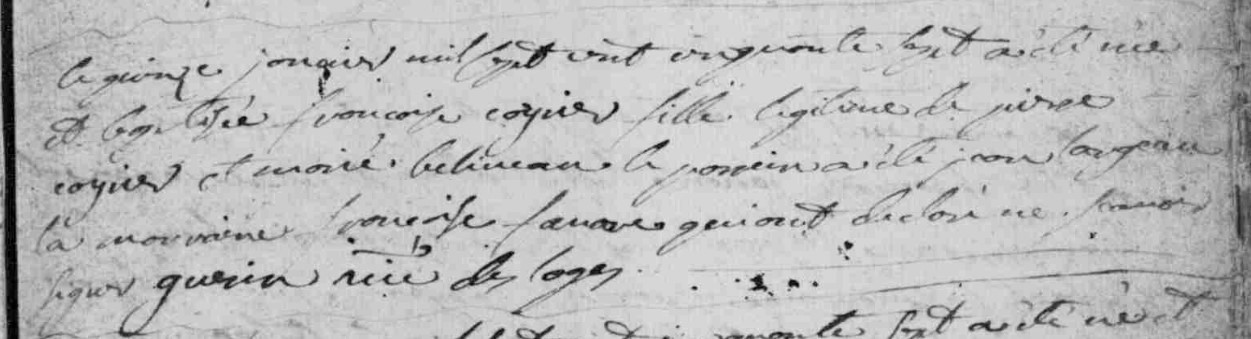 le quinze janvier mil sept cent cinquante sept a été née
et baptisée francoise coyier fille legitime de pierre
coyier et marie belineau le parein a été jean largeau
la marraine francoise qui ont declaré ne scavoir
signer guerin des loges
sept a été né et